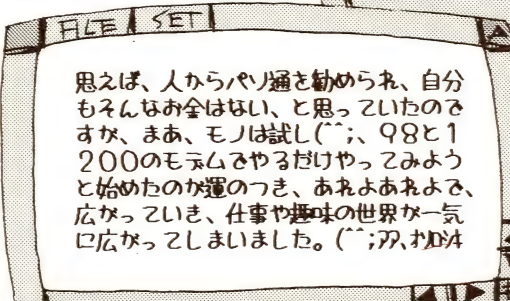 FILE SET
思えば、人からパソ通を勧められ、自分
もそんなお金はない、と思っていたので
すが、まあ、モノは試し(^^;、98と1
200のモデムでやるだけやってみよう
と始めたのが運のつき、あれよあれよで、
広がっていき、仕事や趣味の世界が一気
に広がってしまいました。(^^;